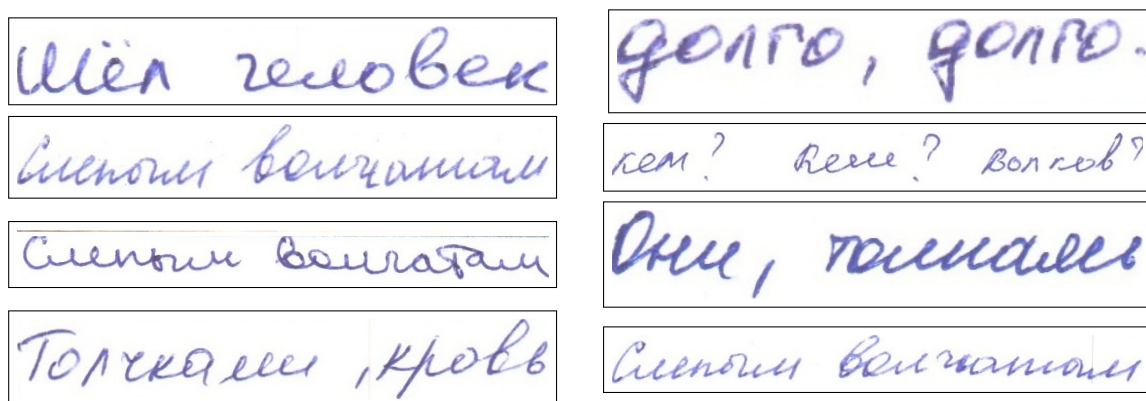 Шёл человек
Слепым волчатам
Слепым волчатам
Толчками, кровь
долго, долго.
кем? Кеше? Волков?
Они, толкаясь
Слепым волчатам